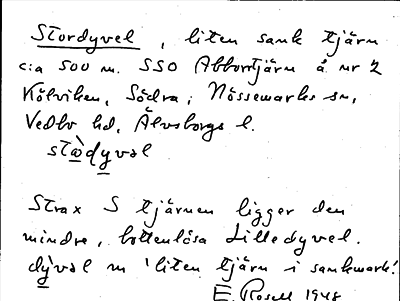 Stordyvel, liten sank tjärn
c:a 500 m. SSO Abbortjärn å nr 2
Kölviken, Södra; Nössemarks sn,
Vedbo hd, Älvsborgs l.
stòdyvəl
Strax S tjärnen ligger den
mindre, bottenlösa Lilledyvel.
dyvəl m 'liten tjärn i sankmark'.
E. Rosell 1948